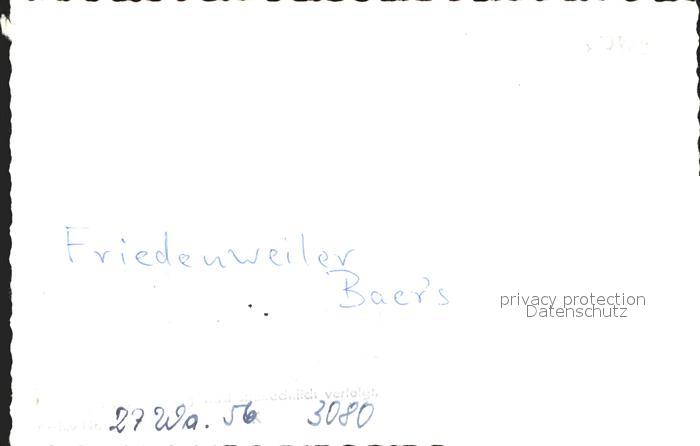 Friedenweiler
Baer's
privacy protection
Datenschutz
verfolgt.
27 Wa. 56 3080